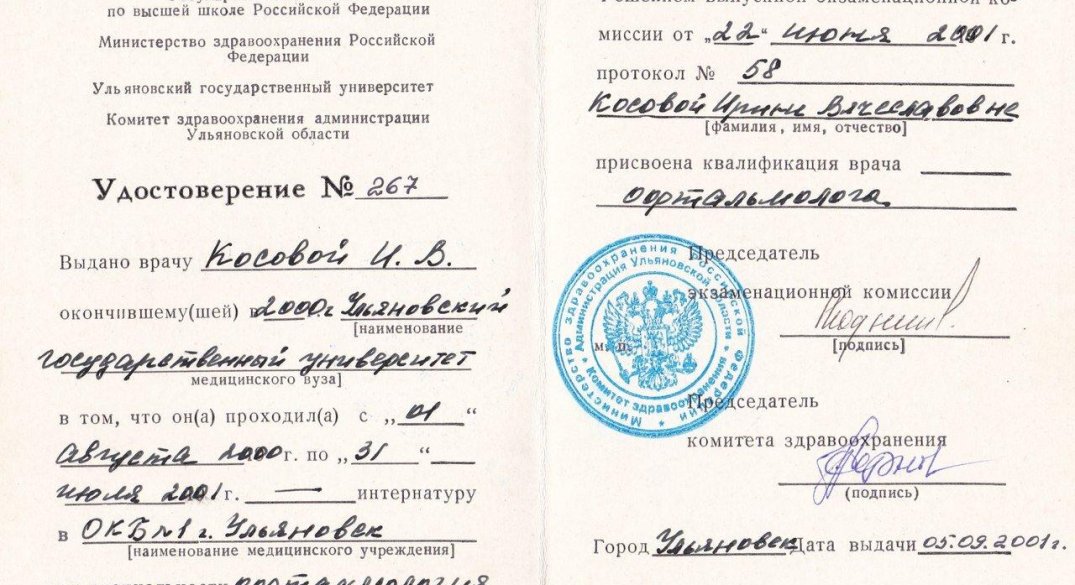 по высшей школе Российской Федерации
Министерство здравоохранения Российской
Федерации
Ульяновский государственный университет
Комитет здравоохранения администрации
Ульяновской области
Удостоверение № 267
Выдано врачу Косовой И. В.
окончившему(шей) в 2000г Ульяновский
[наименование
государственный университет
медицинского вуза]
в том, что он(а) проходил(а) с „ 01 “
августа 2000 г. по „ 31 “
июля 2001 г. — интернатуру
в ОКБ №1 г. Ульяновск
[наименование медицинского учреждения]
офтальмология
Решением выпускной экзаменационной ко-
миссии от „22“ июня 2001 г.
протокол № 58
Косовой Ирине Вячеславовне
[фамилия, имя, отчество]
присвоена квалификация врача
офтальмолога
Председатель
экзаменационной комиссии
[подпись]
м. п.
Министерство здравоохранения Российской Федерации
Администрация Ульяновской области
Комитет здравоохранения
Председатель
комитета здравоохранения
(подпись)
Город Ульяновск Дата выдачи 05.09.2001г.